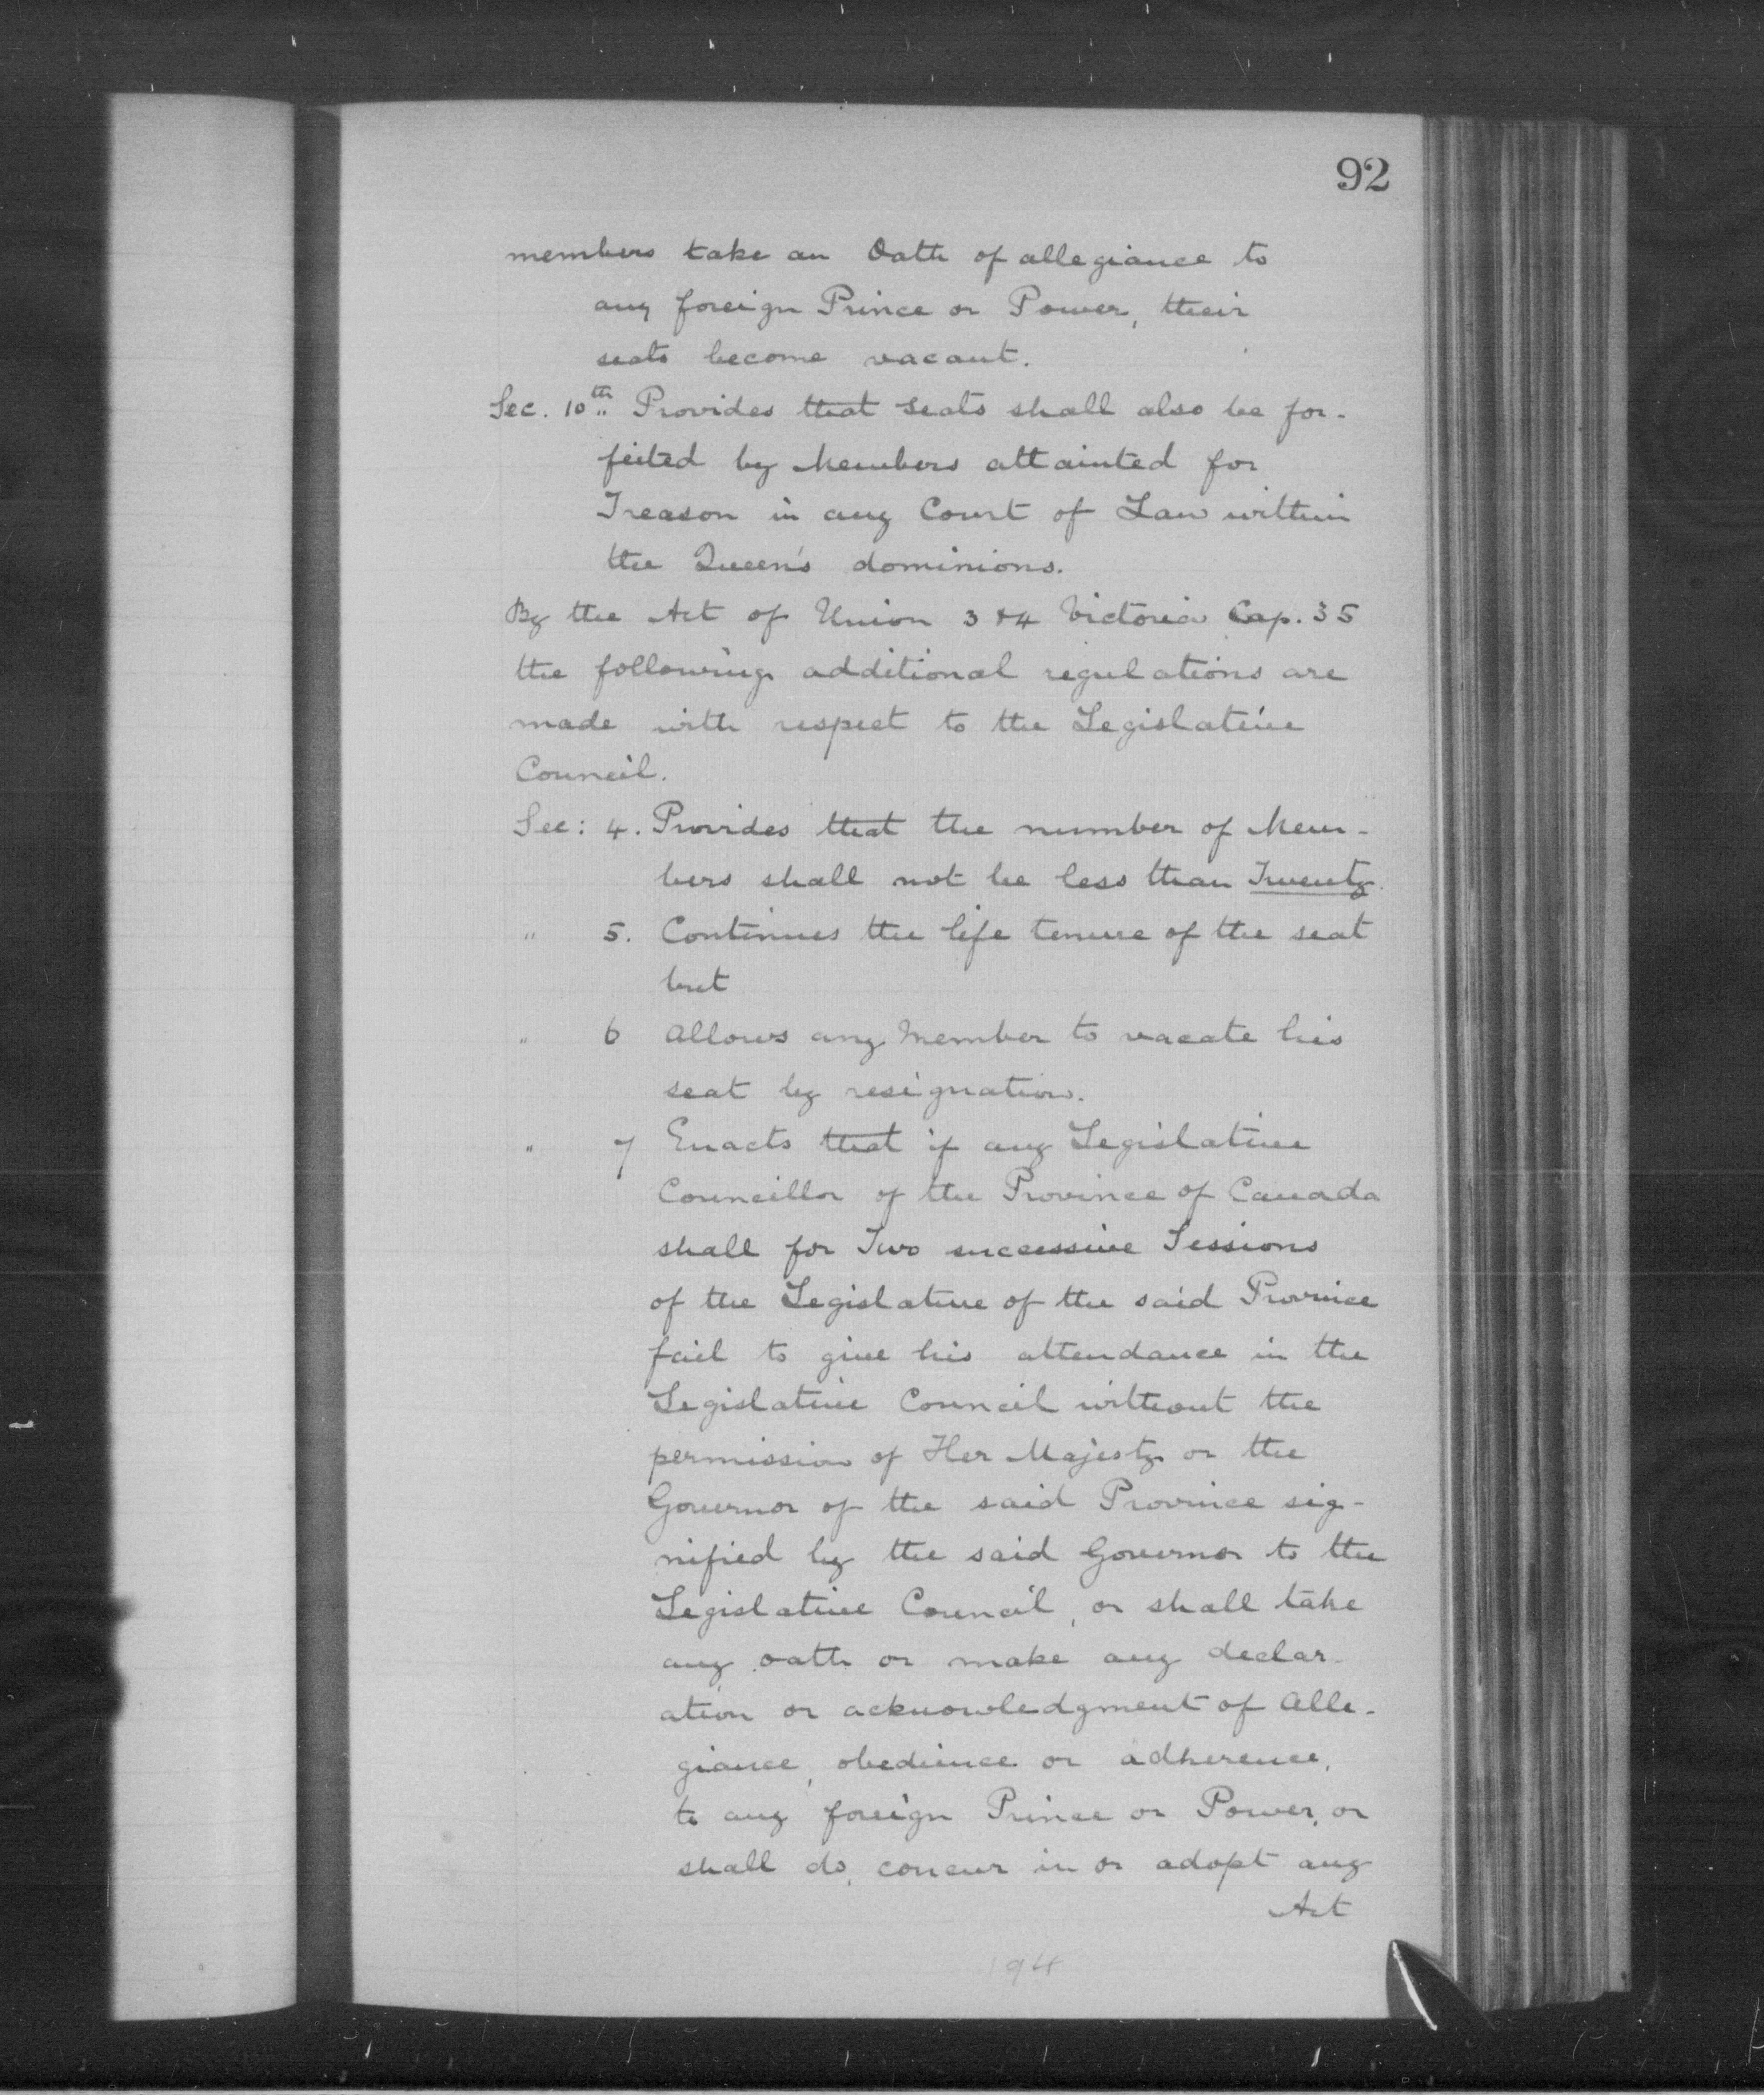 92
members take an Oath of allegiance to
any foreign Prince or Power, their
seats become vacant.
Sec. 10th Provides that seats shall also be for-
feited by Members attainted for
Treason in any Court of Law within
the Queen's dominions.
By the Act of Union 3 & 4 Victoria Cap. 35
the following additional regulations are
made with respect to the Legislative
Council.
Sec: 4. Provides that the number of Mem-
bers shall not be less than Twenty.
" 5. Continues the life tenure of the seat
but
" 6 Allows any Member to vacate his
seat by resignation.
" 7 Enacts that if any Legislative
Councillor of the Province of Canada
shall for Two successive Sessions
of the Legislature of the said Province
fail to give his attendance in the
Legislative Council without the
permission of Her Majesty or the
Governor of the said Province sig-
nified by the said Governor to the
Legislative Council, or shall take
any oath or make any declar-
ation or acknowledgment of Alle-
giance, obedience or adherence,
to any foreign Prince or Power, or
shall do, concur in or adopt any
Act
194